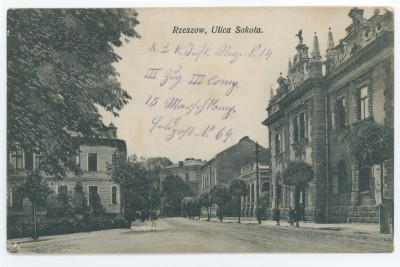 Rzeszow, Ulica Sokoła.
K. u k. Inft. Reg. N. 14
III Zug III Comp.
15 Marschkomp.
Feldpost N. 69